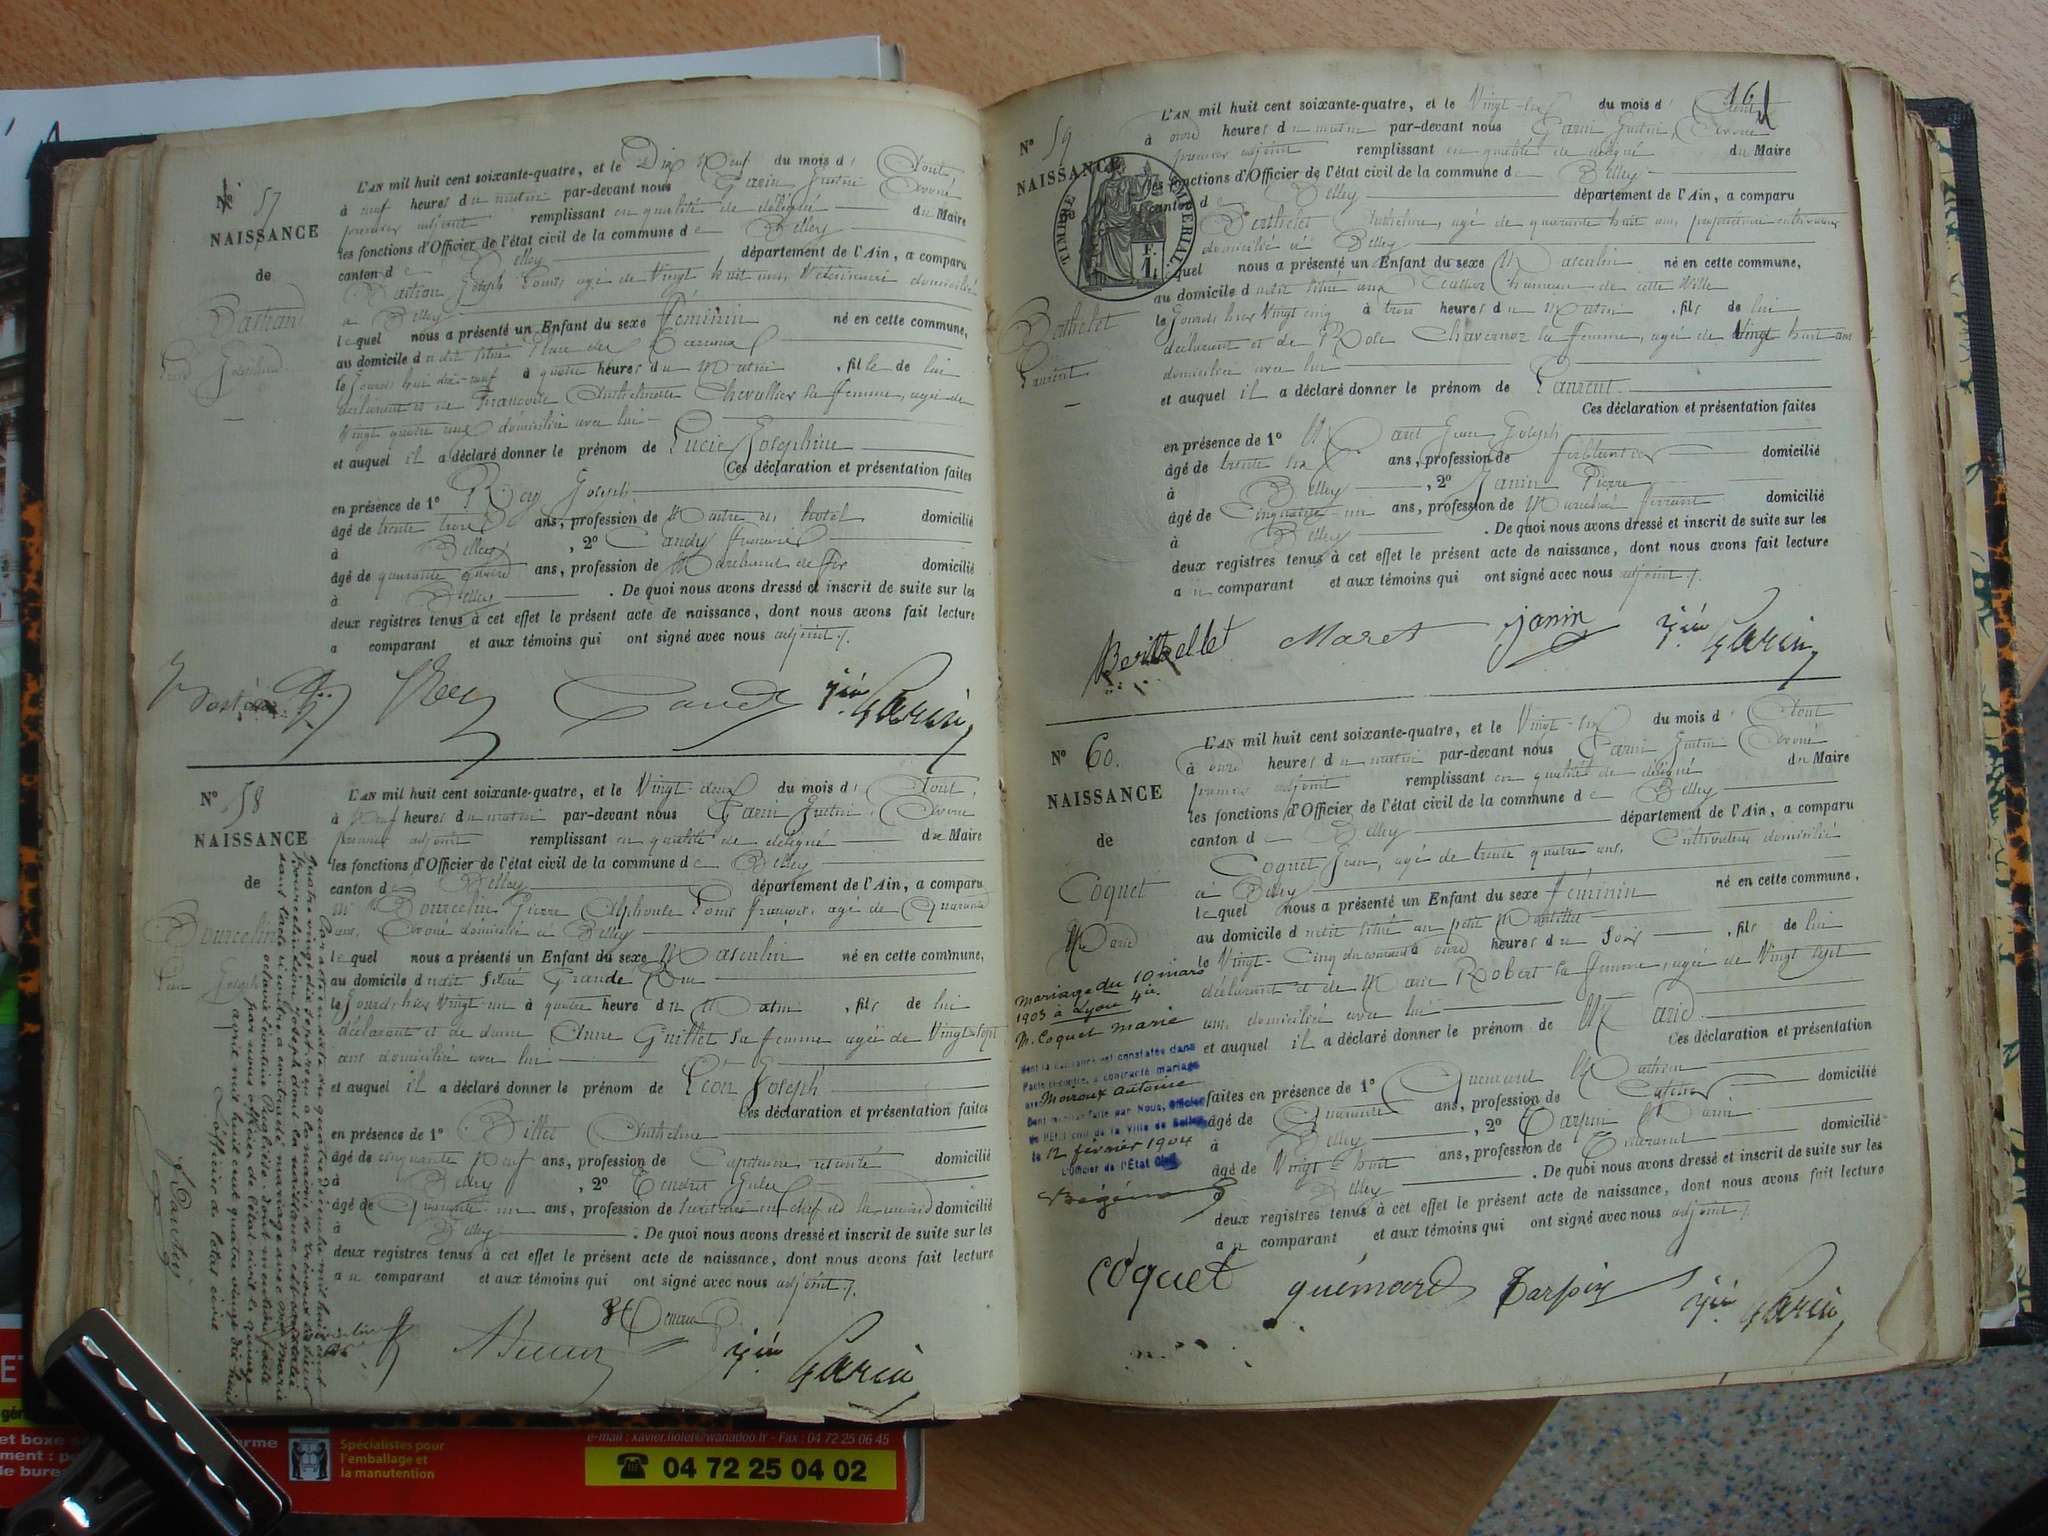 Nº 57
NAISSANCE
de
Bastian
Lucie Joséphine
L'AN mil huit cent soixante-quatre, et le Dix Neuf du mois d' Aout
à neuf heures du matin par-devant nous Garin Avoué
premier adjoint remplissant en qualité de délégué du Maire
les fonctions d'Officier de l'état civil de la commune de Belley
canton de Belley département de l'Ain, a comparu
Bastian Joseph Louis, agé de Vingt huit ans, Vétérinaire domicilié
à Belley
lequel nous a présenté un Enfant du sexe Féminin né en cette commune,
au domicile dudit situé Place des Terreaux
le jourd'hui dix-neuf à quatre heures du Matin, fille de lui
déclarant et de Françoise Anthelmette Chevallier sa femme, agée de
Vingt quatre ans domiciliée avec lui
et auquel il a déclaré donner le prénom de Lucie Joséphine
Ces déclaration et présentation faites
en présence de 1º Rey Joseph
âgé de trente trois ans, profession de Maitre d' hotel domicilié
à Belley, 2º Candy
âgé de quarante quatre ans, profession de Marchand de fer domicilié
à Belley. De quoi nous avons dressé et inscrit de suite sur les
deux registres tenus à cet effet le présent acte de naissance, dont nous avons fait lecture
a comparant et aux témoins qui ont signé avec nous adjoint ./.
Rey Candy Garin
Nº 58
NAISSANCE
de
Bourcelin
Léon Joseph
L'AN mil huit cent soixante-quatre, et le Vingt-deux du mois d' Aout,
à Neuf heures du matin par-devant nous Garin Avoué
premier adjoint remplissant en qualité de délégué du Maire
les fonctions d'Officier de l'état civil de la commune de Belley
canton de Belley département de l'Ain, a comparu
Mr Bourcelin Pierre Alphonse Louis François, agé de Quarante
ans, Avoué domicilié à Belley
lequel nous a présenté un Enfant du sexe Masculin né en cette commune,
au domicile dudit Situé Grande Rue
le jourd'hier Vingt-un à quatre heure du Matin, fils de lui
déclarant et de dame Anne Guillot sa femme agée de Vingt-sept
ans domiciliée avec lui
et auquel il a déclaré donner le prénom de Léon Joseph
Ces déclaration et présentation faites
en présence de 1º Billet Anthelme
âgé de cinquante Neuf ans, profession de Capitaine retraité domicilié
à Belley, 2º
âgé de Quarante un ans, profession de domicilié
à Belley. De quoi nous avons dressé et inscrit de suite sur les
deux registres tenus à cet effet le présent acte de naissance, dont nous avons fait lecture
au comparant et aux témoins qui ont signé avec nous adjoint ./.
Garin
Par acte en date du quatre décembre mil huit cent
quatre vingt dix sept, reçu à la mairie de
Bourcelin Léon Joseph dont la naissance est constatée
dans l'acte ci contre a contracté mariage avec Melle Marie
dont mention faite
par nous officier de l'état civil le quinze
avril mil huit cent quatre vingt dix huit
L'officier de l'état civil
161
Nº 59
NAISSANCE
TIMBRE IMPERIAL
1 F.
Berthelet
Laurent
L'AN mil huit cent soixante-quatre, et le Vingt-six du mois d' Aout
à onze heures du matin par-devant nous Garin Avoué
premier adjoint remplissant en qualité de délégué du Maire
les fonctions d'Officier de l'état civil de la commune de Belley
canton de Belley département de l'Ain, a comparu
Berthelet Anthelme, agé de quarante huit ans, propriétaire cultivateur
domicilié à Belley
lequel nous a présenté un Enfant du sexe Masculin né en cette commune,
au domicile dudit situé aux hameau de cette Ville
le jourd'hier Vingt cinq à trois heures du Matin, fils de lui
déclarant et de Rose Chavernoz sa femme, agée de Vingt huit ans
domiciliée avec lui
et auquel il a déclaré donner le prénom de Laurent
Ces déclaration et présentation faites
en présence de 1º Maret Jean Joseph
âgé de trente six ans, profession de ferblantier domicilié
à Belley, 2º Janin Pierre
âgé de Cinquante un ans, profession de Maréchal ferrant domicilié
à Belley. De quoi nous avons dressé et inscrit de suite sur les
deux registres tenus à cet effet le présent acte de naissance, dont nous avons fait lecture
au comparant et aux témoins qui ont signé avec nous adjoint ./.
Berthellet Maret janin Garin
Nº 60.
NAISSANCE
de
Coquet
Marie
L'AN mil huit cent soixante-quatre, et le Vingt-six du mois d' Aout
à onze heures du matin par-devant nous Garin Avoué
premier adjoint remplissant en qualité de délégué du Maire
les fonctions d'Officier de l'état civil de la commune de Belley
canton de Belley département de l'Ain, a comparu
Coquet Jean, agé de trente quatre ans, Cultivateur domicilié
à Belley
lequel nous a présenté un Enfant du sexe Féminin né en cette commune,
au domicile dudit situé au petit
le Vingt-Cinq du courant à onze heures du Soir, fils de lui
déclarant et de Marie Robert sa femme, agée de Vingt sept
ans, domiciliée avec lui
et auquel il a déclaré donner le prénom de Marie
Ces déclaration et présentation
faites en présence de 1º Guemard
âgé de Quarante ans, profession de domicilié
à Belley, 2º Tarpin Marin
âgé de Vingt-huit ans, profession de domicilié
à Belley. De quoi nous avons dressé et inscrit de suite sur les
deux registres tenus à cet effet le présent acte de naissance, dont nous avons fait lecture
au comparant et aux témoins qui ont signé avec nous adjoint ./.
Coquet guémard Tarpin Garin
Mariage du 10 mars
1903 à Lyon 4e
M. Coquet Marie
dont la naissance est constatée dans
l'acte ci-contre, a contracté mariage
avec Moiroux Antoine
Dont mention faite par Nous, Officier
de l'Etat civil de la Ville de Belley
le 12 février 1904
L'Officier de l'Etat Civil
e-mail : xavier.fiolet@wanadoo.fr - Fax : 04 72 25 06 45
☎ 04 72 25 04 02
Spécialistes pour
l'emballage et
la manutention